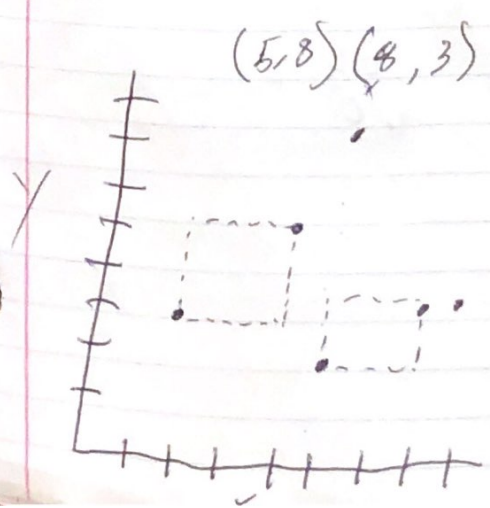 (5,8) (8,3)
Y